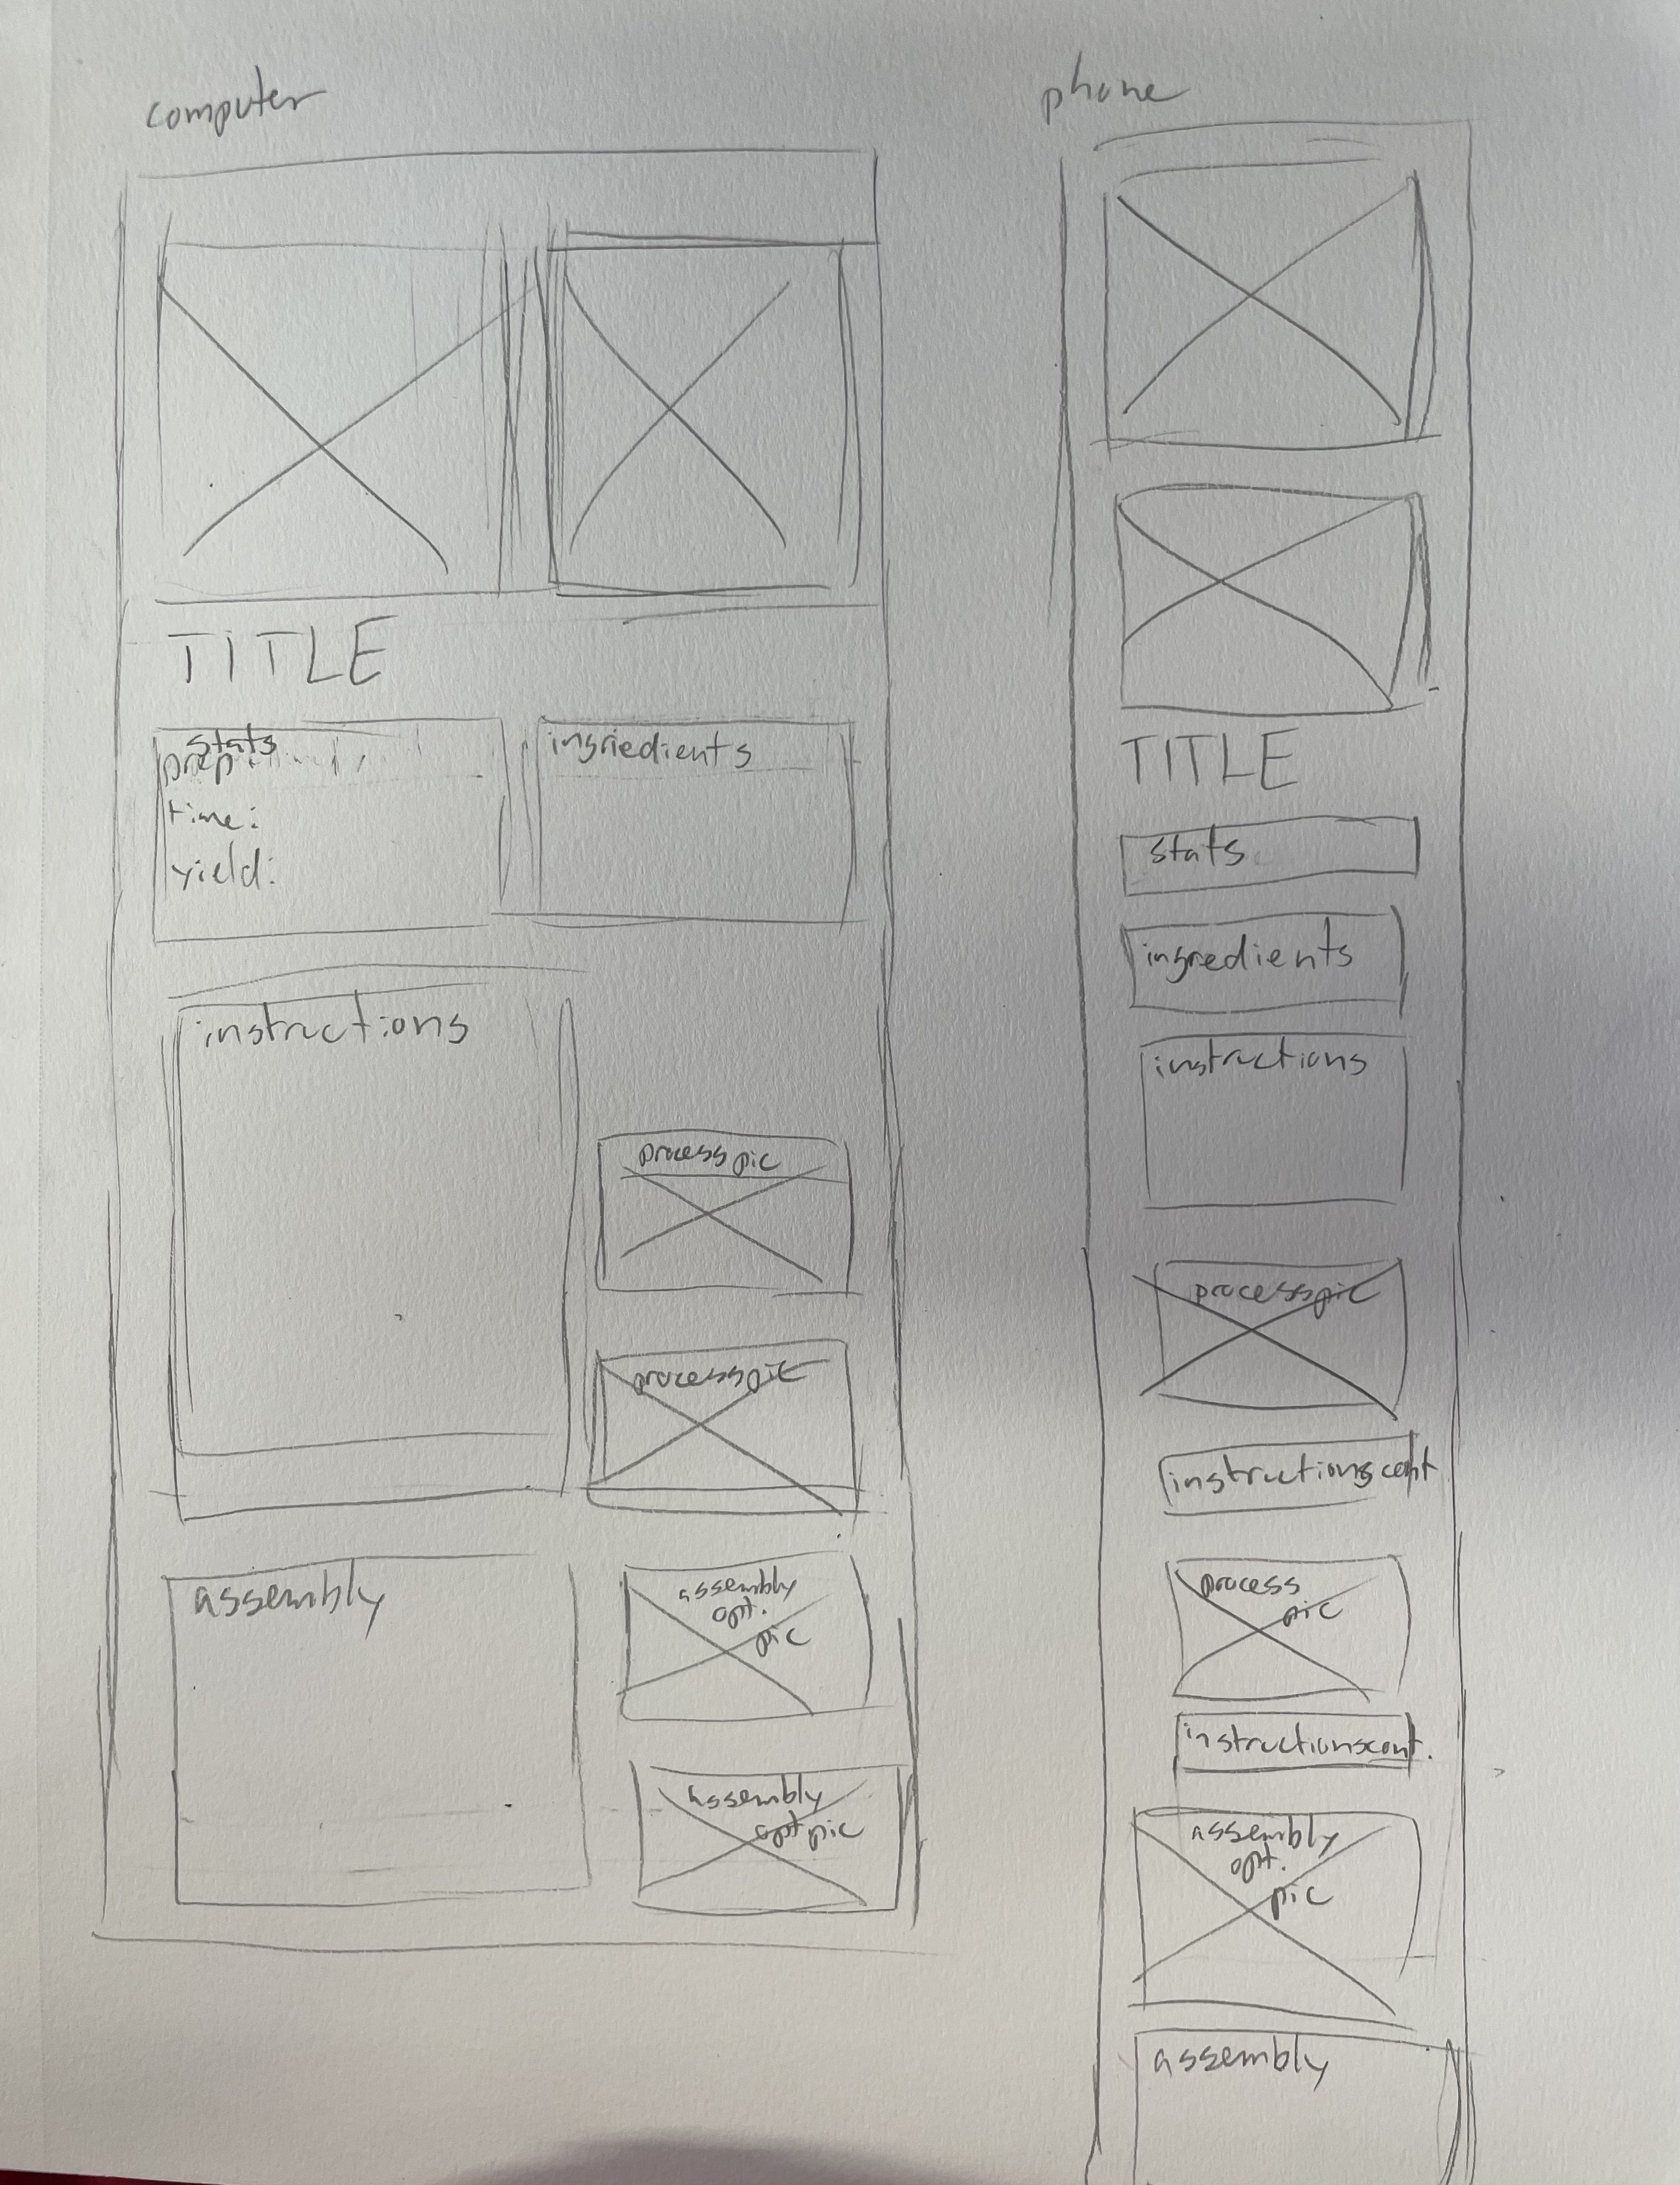 computer
TITLE
stats
prep
time:
yield:
ingriedients
instructions
process pic
process pic
assembly
assembly
opt.
pic
assembly
opt pic
phone
TITLE
stats
ingredients
instructions
process pic
instructions cont
process
pic
instructions cont.
assembly
opt.
pic
assembly